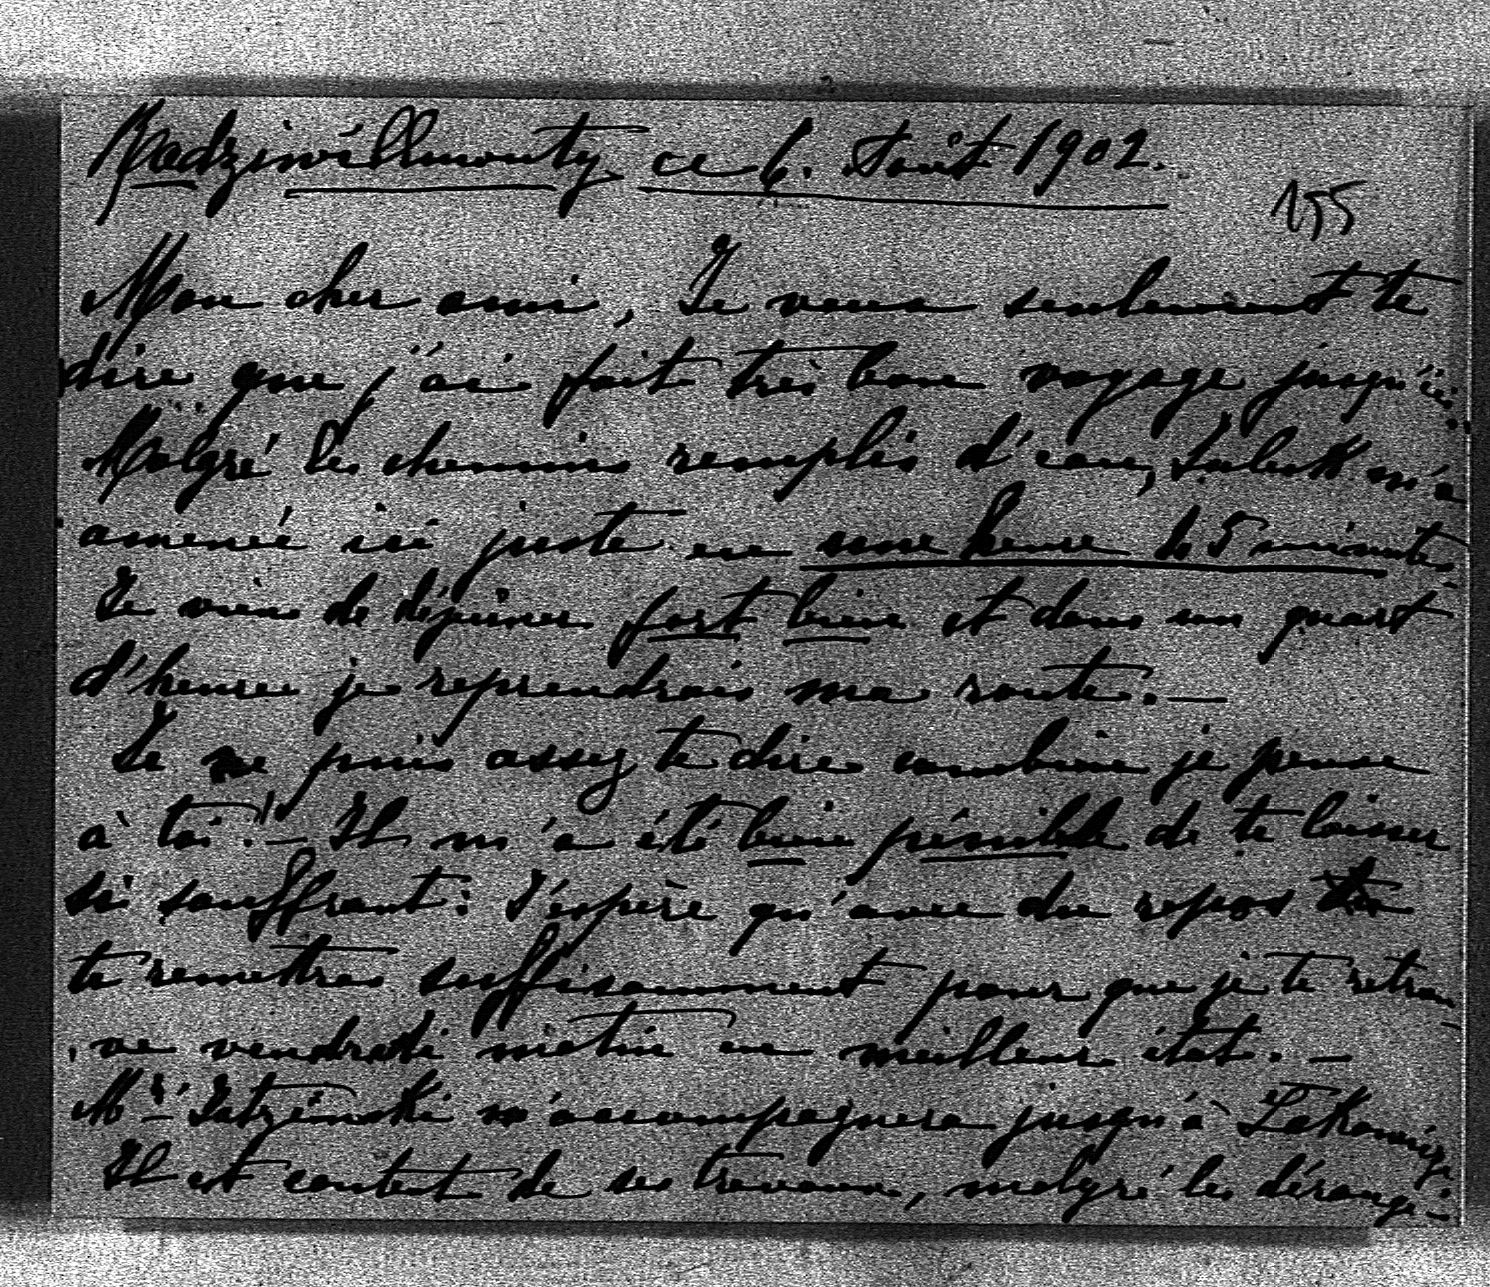 Radziwillmonty ce 6. Août 1902.
155
Mon cher ami, Je veux seulement te
dire que j'ai fait très bon voyage jusqu'ici.
Malgré les chemins remplis d'eau, m'a
amenée ici juste en une heure 45 minutes.
Je viens de déjeuner fort bien et dans un quart
d'heure je reprendrais ma route. —
Je ne puis assez te dire combien je pense
à toi! — Il m'a été bien pénible de te laisser
si souffrant: J'espère qu'avec du repos tu
te remettras suffisamment pour que je te retrou-
ve vendredi mâtin en meilleur état. —
Mr. m'accompagnera jusqu'à
Il est content de ses travaux, malgré les dérange-